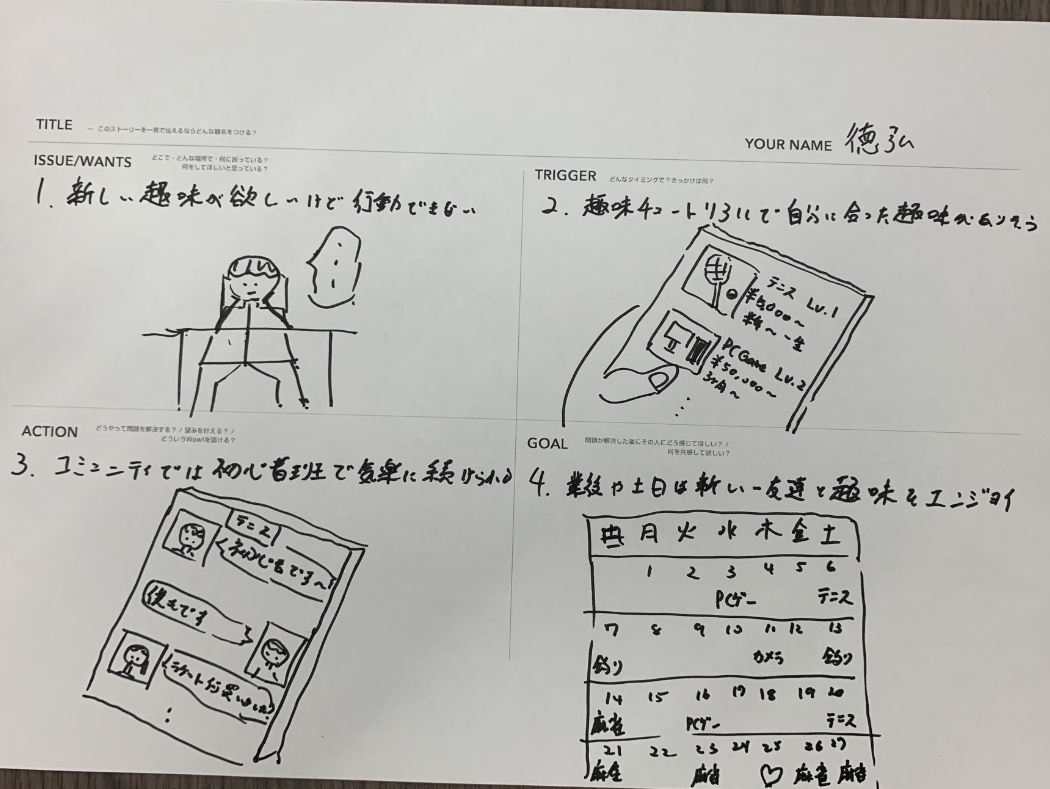 TITLE — このストーリーを一言で伝えるならどんな題名をつける?
YOUR NAME 徳弘
ISSUE/WANTS どこで・どんな場所で・何に困っている?
何をしてほしいと思っている?
1. 新しい趣味が欲しいけど行動できない
TRIGGER どんなタイミングで?きっかけは何?
2. 趣味チュートリアルで自分に合った趣味が
テニス Lv.1
¥5,000〜
半年〜一生
PC Game Lv.2
¥50,000〜
3ヶ月〜
ACTION どうやって問題を解決する?/望みを叶える?/
どういうWow!を届ける?
3. コミュニティでは初心者班で気楽に続けられる
テニス
初心者です〜!
僕もです
ラケット何買いました?
GOAL 問題が解決した後にその人にどう感じてほしい?/
何を共感して欲しい?
4. 業後や土日は新しい友達と趣味をエンジョイ
日 月 火 水 木 金 土
1 2 3 4 5 6
PCゲー テニス
7 8 9 10 11 12 13
釣り カメラ 釣り
14 15 16 17 18 19 20
麻雀 PCゲー テニス
21 22 23 24 25 26 27
麻雀 麻雀 ♡ 麻雀 麻雀